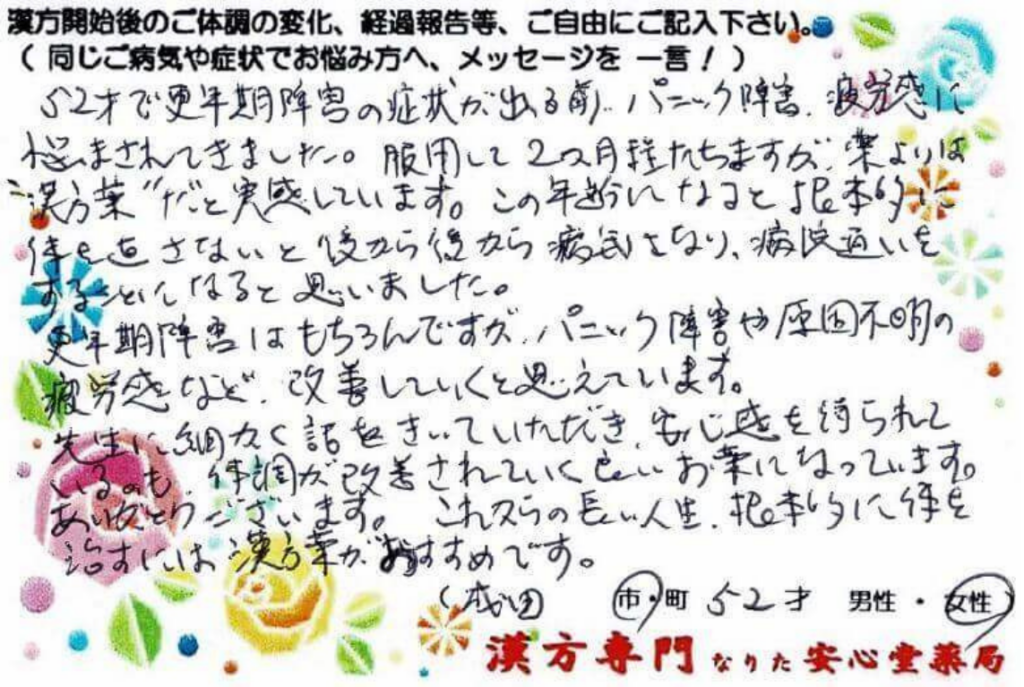 漢方開始後のご体調の変化、経過報告等、ご自由にご記入下さい。
（ 同じご病気や症状でお悩み方へ、メッセージを 一言！）
52才で更年期障害の症状が出る前、パニック障害、疲労感に
悩まされてきました。服用して2つ月程たちますが、薬よりは
"漢方薬"だと実感しています。この年齢になると根本的に
体を直さないと後から後から病気になり、病院通いを
することになると思いました。
更年期障害はもちろんですが、パニック障害や原因不明の
疲労感など、改善していくと思えています。
先生に細かく話をきいていただき、安心感を得られて
いるのも、体調が改善されていく良いお薬になっています。
ありがとうございます。 これからの長い人生、根本的に体を
治すには漢方薬がおすすめです。
（成田 市・町 52才 男性・女性）
漢方専門 なりた 安心堂薬局